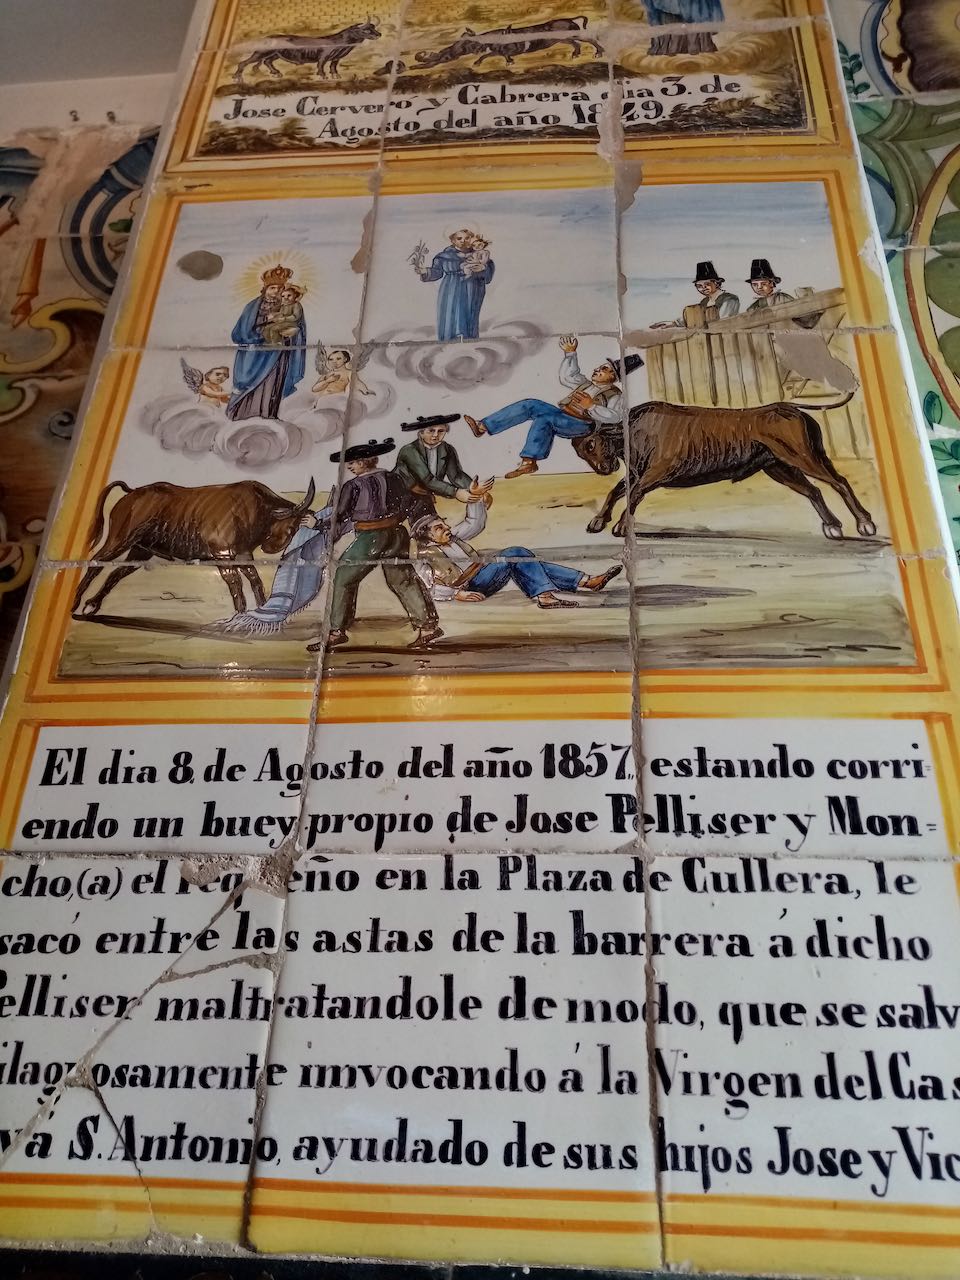 Jose Cerveró y Cabrera dia 3. de
Agosto del año 1849.
El dia 8, de Agosto del año 1857, estando corri=
endo un buey propio de Jose Pelliser y Mon=
cho,(a) el en la Plaza de Cullera, le
sacó entre las astas de la barrera á dicho
Pelliser maltratandole de modo, que se salv
ilagrosamente imvocando á la Virgen del Cas
y á S. Antonio, ayudado de sus hijos Jose y Vic